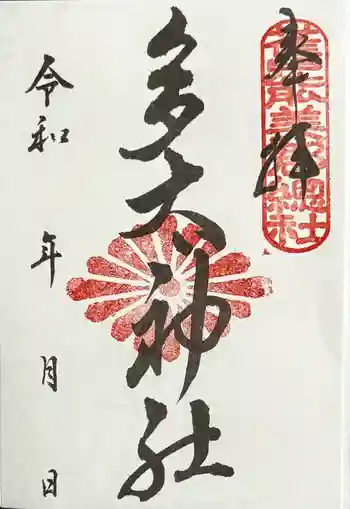 奉拝
多大神社
令和 年 月 日